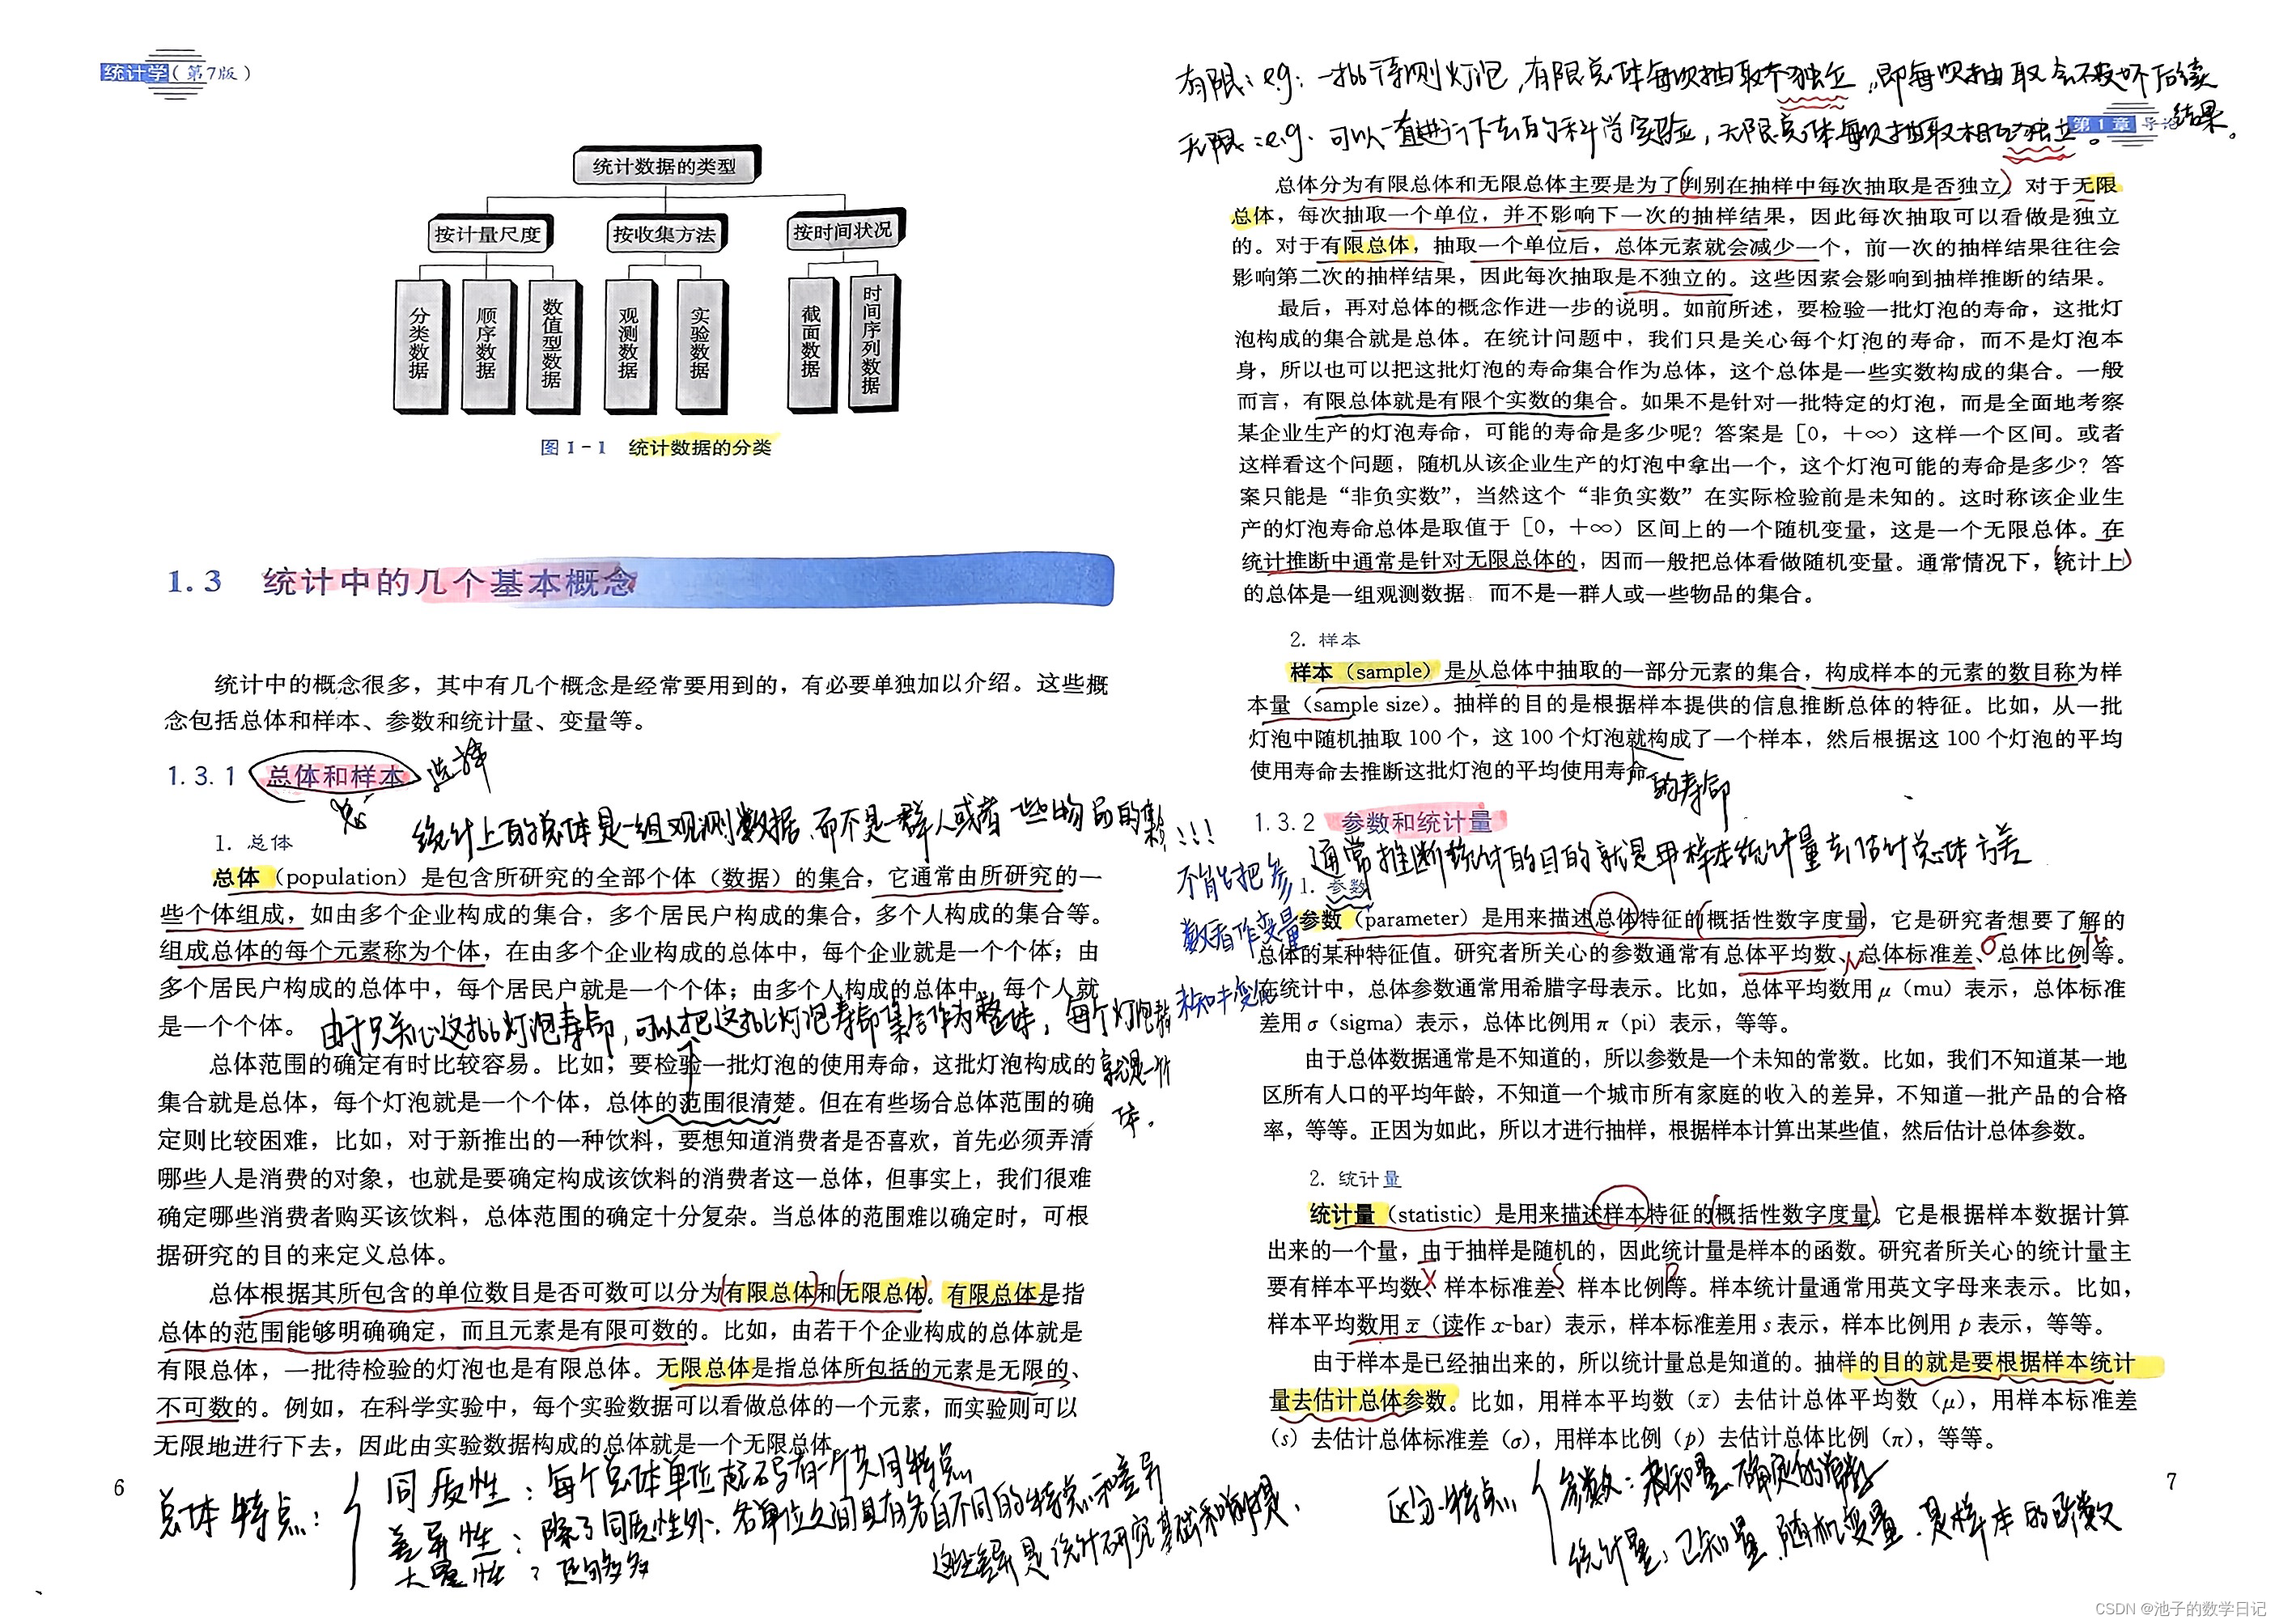 统计学(第7版)
统计数据的类型
按计量尺度
按收集方法
按时间状况
分类数据
顺序数据
数值型数据
观测数据
实验数据
截面数据
时间序列数据
图 1-1 统计数据的分类
1.3 统计中的几个基本概念
统计中的概念很多，其中有几个概念是经常要用到的，有必要单独加以介绍。这些概
念包括总体和样本、参数和统计量、变量等。
1.3.1 总体和样本
选择
统计上的总体是一组观测数据，而不是一群人或者一些物品的集合!!!
1. 总体
总体（population）是包含所研究的全部个体（数据）的集合，它通常由所研究的一
些个体组成，如由多个企业构成的集合，多个居民户构成的集合，多个人构成的集合等。
组成总体的每个元素称为个体，在由多个企业构成的总体中，每个企业就是一个个体；由
多个居民户构成的总体中，每个居民户就是一个个体；由多个人构成的总体中，每个人就
是一个个体。
由于只关心这批灯泡寿命，可以把这批灯泡寿命集合作为整体，每个灯泡寿
就是一个
体。
总体范围的确定有时比较容易。比如，要检验一批灯泡的使用寿命，这批灯泡构成的
集合就是总体，每个灯泡就是一个个体，总体的范围很清楚。但在有些场合总体范围的确
定则比较困难，比如，对于新推出的一种饮料，要想知道消费者是否喜欢，首先必须弄清
哪些人是消费的对象，也就是要确定构成该饮料的消费者这一总体，但事实上，我们很难
确定哪些消费者购买该饮料，总体范围的确定十分复杂。当总体的范围难以确定时，可根
据研究的目的来定义总体。
总体根据其所包含的单位数目是否可数可以分为有限总体和无限总体。有限总体是指
总体的范围能够明确确定，而且元素是有限可数的。比如，由若干个企业构成的总体就是
有限总体，一批待检验的灯泡也是有限总体。无限总体是指总体所包括的元素是无限的、
不可数的。例如，在科学实验中，每个实验数据可以看做总体的一个元素，而实验则可以
无限地进行下去，因此由实验数据构成的总体就是一个无限总体。
6
总体特点：
同质性：每个总体单位起码有一个共同特点
差异性：除了同质性外，各单位之间具有各自不同的特点和差异
这些差异是统计研究基础和前提.
大量性：足够多
有限：e.g：一批待测灯泡，有限总体每次抽取不独立，即每次抽取会破坏后续
结果。
无限：e.g. 可以一直进行下去的科学实验，无限总体每次抽取相互独立。
第1章 导论
总体分为有限总体和无限总体主要是为了判别在抽样中每次抽取是否独立。对于无限
总体，每次抽取一个单位，并不影响下一次的抽样结果，因此每次抽取可以看做是独立
的。对于有限总体，抽取一个单位后，总体元素就会减少一个，前一次的抽样结果往往会
影响第二次的抽样结果，因此每次抽取是不独立的。这些因素会影响到抽样推断的结果。
最后，再对总体的概念作进一步的说明。如前所述，要检验一批灯泡的寿命，这批灯
泡构成的集合就是总体。在统计问题中，我们只是关心每个灯泡的寿命，而不是灯泡本
身，所以也可以把这批灯泡的寿命集合作为总体，这个总体是一些实数构成的集合。一般
而言，有限总体就是有限个实数的集合。如果不是针对一批特定的灯泡，而是全面地考察
某企业生产的灯泡寿命，可能的寿命是多少呢？答案是［0，+∞）这样一个区间。或者
这样看这个问题，随机从该企业生产的灯泡中拿出一个，这个灯泡可能的寿命是多少？答
案只能是“非负实数”，当然这个“非负实数”在实际检验前是未知的。这时称该企业生
产的灯泡寿命总体是取值于［0，+∞）区间上的一个随机变量，这是一个无限总体。在
统计推断中通常是针对无限总体的，因而一般把总体看做随机变量。通常情况下，统计上
的总体是一组观测数据，而不是一群人或一些物品的集合。
2. 样本
样本（sample）是从总体中抽取的一部分元素的集合，构成样本的元素的数目称为样
本量（sample size）。抽样的目的是根据样本提供的信息推断总体的特征。比如，从一批
灯泡中随机抽取 100 个，这 100 个灯泡就构成了一个样本，然后根据这 100 个灯泡的平均
使用寿命去推断这批灯泡的平均使用寿命。
的寿命
1.3.2 参数和统计量
通常推断统计的目的就是用样本统计量去估计总体方差
不能把参
数看作变量
未知≠变化
1. 参数
参数（parameter）是用来描述总体特征的概括性数字度量，它是研究者想要了解的
总体的某种特征值。研究者所关心的参数通常有总体平均数、总体标准差、总体比例等。
μ σ π
在统计中，总体参数通常用希腊字母表示。比如，总体平均数用 μ（mu）表示，总体标准
差用 σ（sigma）表示，总体比例用 π（pi）表示，等等。
由于总体数据通常是不知道的，所以参数是一个未知的常数。比如，我们不知道某一地
区所有人口的平均年龄，不知道一个城市所有家庭的收入的差异，不知道一批产品的合格
率，等等。正因为如此，所以才进行抽样，根据样本计算出某些值，然后估计总体参数。
2. 统计量
统计量（statistic）是用来描述样本特征的概括性数字度量。它是根据样本数据计算
出来的一个量，由于抽样是随机的，因此统计量是样本的函数。研究者所关心的统计量主
要有样本平均数、样本标准差、样本比例等。样本统计量通常用英文字母来表示。比如，
x̄ s P
样本平均数用 x̄（读作 x-bar）表示，样本标准差用 s 表示，样本比例用 p 表示，等等。
由于样本是已经抽出来的，所以统计量总是知道的。抽样的目的就是要根据样本统计
量去估计总体参数。比如，用样本平均数（x̄）去估计总体平均数（μ），用样本标准差
（s）去估计总体标准差（σ），用样本比例（p）去估计总体比例（π），等等。
7
区分特点
参数：未知量、确定的常数
统计量：已知量、随机变量、是样本的函数
CSDN @池子的数学日记